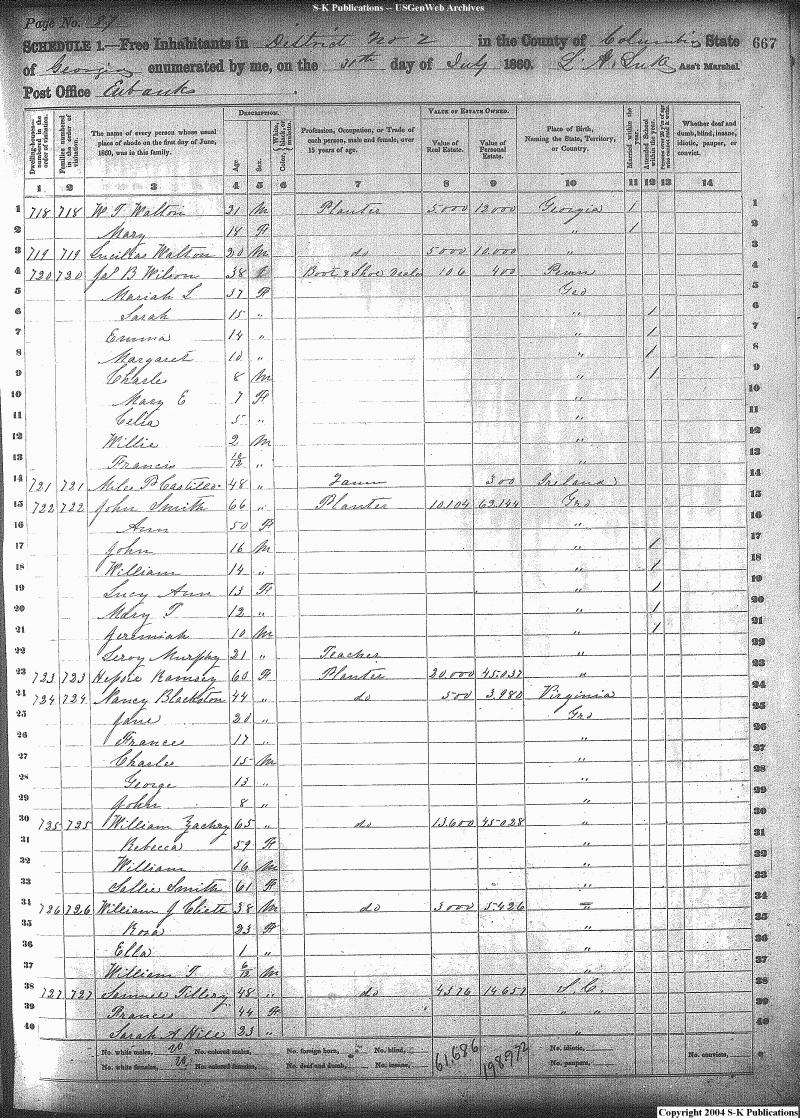 S-K Publications -- USGenWeb Archives
Page No. 87
SCHEDULE 1.—Free Inhabitants in District No 2 in the County of Columbia State 667
of Georgia enumerated by me, on the 31th day of July 1860. L. A. Luke Ass't Marshal.
Post Office Eubanks
Dwelling-houses—numbered in the order of visitation.
Families numbered in the order of visitation.
The name of every person whose usual place of abode on the first day of June, 1860, was in this family.
DESCRIPTION.
Age.
Sex.
Color, White, black, or mulatto.
Profession, Occupation, or Trade of each person, male and female, over 15 years of age.
VALUE OF ESTATE OWNED.
Value of Real Estate.
Value of Personal Estate.
Place of Birth, Naming the State, Territory, or Country.
Married within the year.
Attended School within the year.
Persons over 20 y'rs of age who cannot read & write.
Whether deaf and dumb, blind, insane, idiotic, pauper, or convict.
1 2 3 4 5 6 7 8 9 10 11 12 13 14
1 718 718 W T Walton 21 M Planter 5.000 12000 Georgia 1 1
2 Mary 18 F " 1 2
3 719 719 Walton 20 M do 5000 10.000 " 3
4 720 720 Jas B Wilson 38 Boot & Shoe Dealer 106 400 Penn 4
5 Mariah L 37 F Geo 5
6 Sarah 15 " " 1 6
7 Emma 14 " " 1 7
8 Margaret 10 " " 1 8
9 Charles 8 M " 1 9
10 Mary E 7 F " 10
11 Celia 5 " " 11
12 Willie 2 M " 12
13 Francis 10/12 " " 13
14 721 721 Miles P Castillo 48 " 300 Ireland 14
15 722 722 John Smith 66 " Planter 10.104 63.144 Geo 15
16 Ann 50 F " 16
17 John 16 M " 1 17
18 William 14 " " 1 18
19 Lucy Ann 13 F " 1 19
20 Mary T 12 " " 1 20
21 Jeremiah 10 M " 1 21
22 Leroy Murphy 21 " Teacher " 22
23 723 723 Hepsie Ramsey 60 F Planter 20.000 45.037 " 23
24 724 724 Nancy Blackston 44 " do 500 3.980 Virginia 24
25 Jane 20 " Geo 25
26 Frances 17 " " 26
27 Charlie 15 M " 27
28 George 13 " " 28
29 John 8 " " 29
30 725 725 William Zachry 65 " do 13.600 45.028 " 30
31 Rebecca 59 F " 31
32 William 16 M " 32
33 Sallie Smith 61 F " 33
34 726 726 William J Cliett 38 M do 3000 5.426 " 34
35 Rosa 23 F " 35
36 Ella 1 " " 36
37 William T 6/12 M " 37
38 727 727 Samuel Tillery 48 " do 4376 14.657 S.C. 38
39 Frances 44 F " " 39
40 Sarah A Hill 23 " " 40
No. white males, 20 No. colored males, No. foreign born, No. blind, 61,686 198.972 No. idiotic, No. convicts,
No. white females, 20 No. colored females, No. deaf and dumb, No. insane, No. paupers,
Copyright 2004 S-K Publications